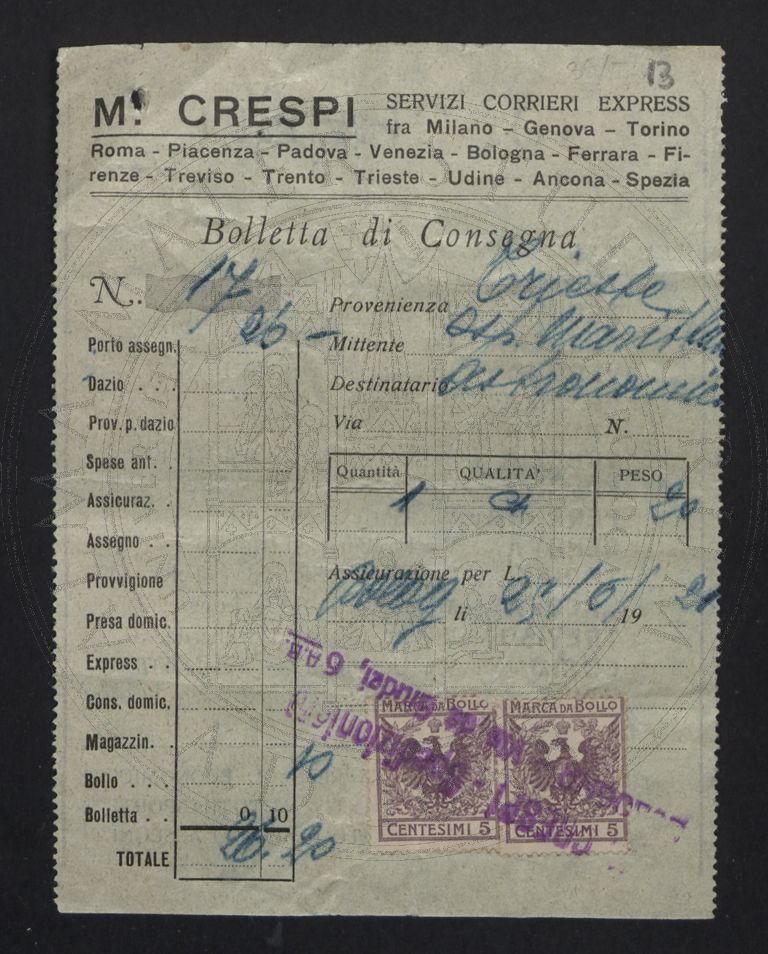 13
M. CRESPI
SERVIZI CORRIERI EXPRESS
fra Milano – Genova – Torino
Roma - Piacenza - Padova - Venezia - Bologna - Ferrara - Fi-
renze - Treviso - Trento - Trieste - Udine - Ancona - Spezia
Bolletta di Consegna
N. 17
Provenienza Trieste
Porto assegn. 26 –
Mittente osp. Maritt
Dazio . . .
Destinatario astronomic
Prov. p. dazio
Via N.
Spese ant. .
Quantità QUALITA' PESO
1 20
Assicuraz. .
Assegno . .
Provvigione
Assicurazione per L.
Presa domic.
li 19 21
Express . .
Cons. domic.
Magazzin. .
Bollo . . . 10
Bolletta . . 0 10
TOTALE 26 20
MARCA DA BOLLO MARCA DA BOLLO
CENTESIMI 5 CENTESIMI 5
CRESPI